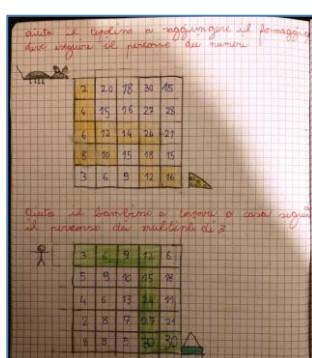 aiuta il topolino a raggiungere il formaggio
deve seguire il percorso dei numeri
2 20 18 30 45
4 15 16 27 28
6 12 14 24 21
8 10 15 18 15
3 6 9 12 16
Aiuta il bambino a tornare a casa
il percorso dei multipli di 3
3 6 9 12 6
5 9 10 15 18
4 6 13 24 11
2 8 7 27 21
8 5 30 30